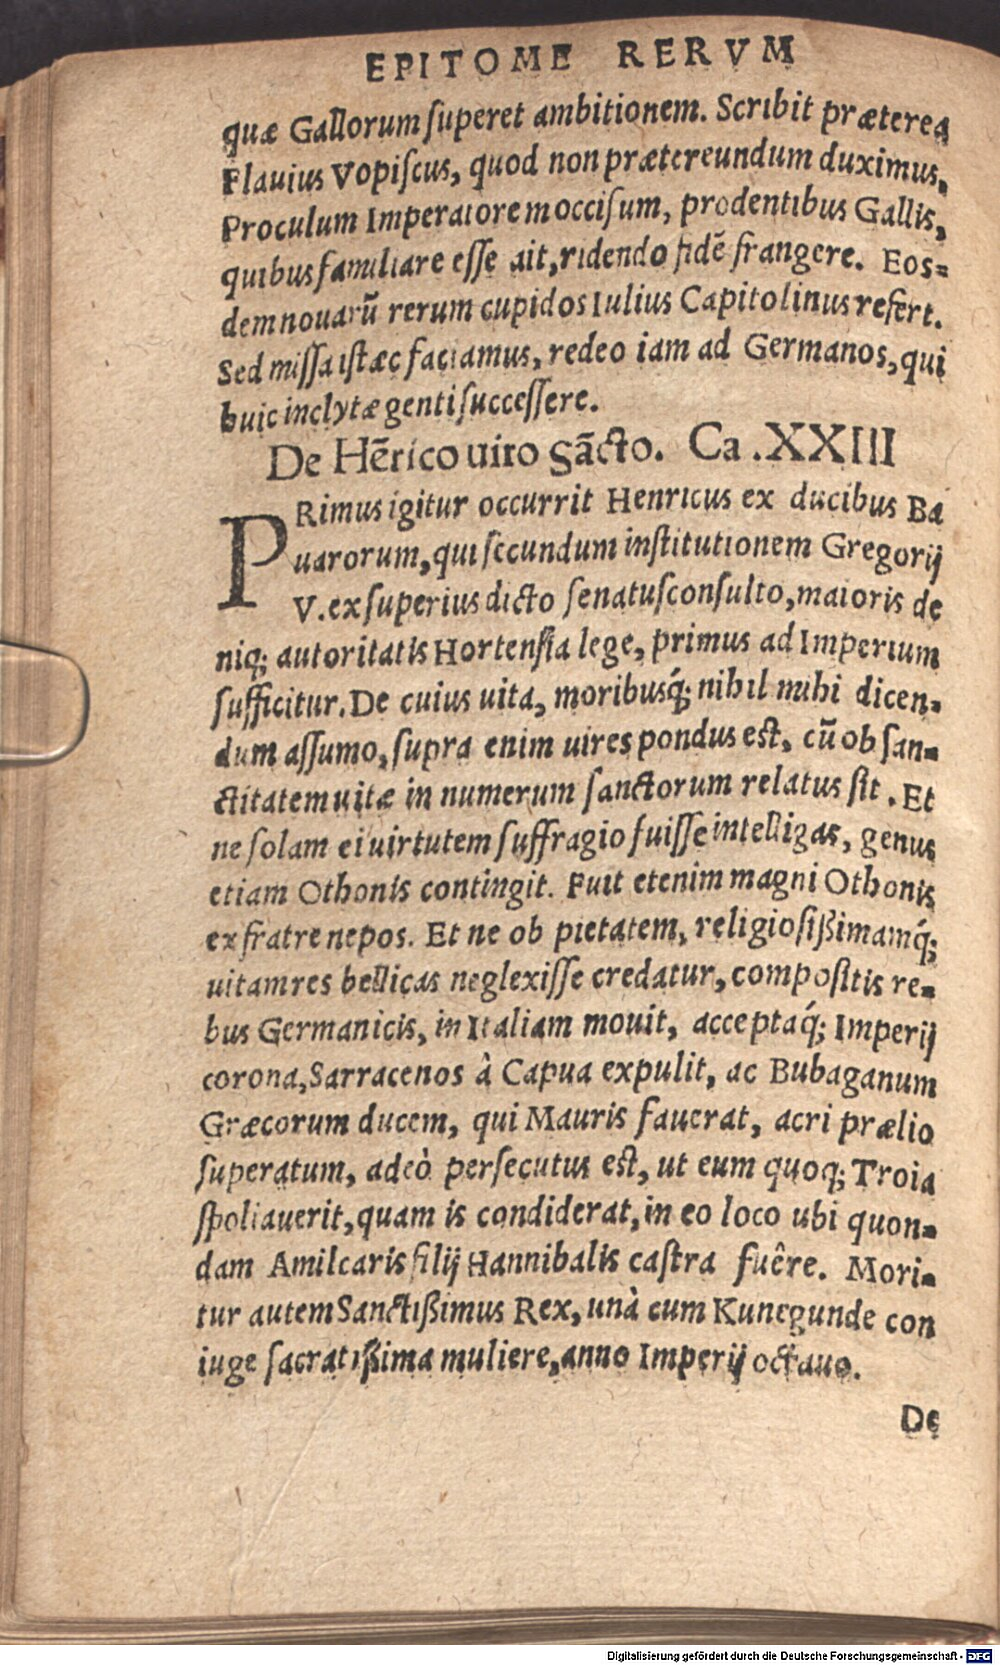 EPITOME RERVM
quæ Gallorum ſuperet ambitionem. Scribit præterea
Flauius Vopiſcus, quod non prætereundum duximus,
Proculum Imperatorem occiſum, prodentibus Gallis,
quibus familiare eſſe ait, ridendo fidē frangere. Eoſ=
dem nouarū rerum cupidos Iulius Capitolinus refert.
Sed miſſa iſtæc faciamus, redeo iam ad Germanos, qui
huic inclytæ genti ſucceſſere.
De Hērico uiro ſācto. Ca .XXIII
PRimus igitur occurrit Henricus ex ducibus Ba
uarorum, qui ſecundum inſtitutionem Gregorij
V. ex ſuperius dicto ſenatuſconſulto, maioris de
niq; autoritatis Hortenſia lege, primus ad Imperium
ſufficitur. De cuius uita, moribusq́; nihil mihi dicen=
dum aſſumo, ſupra enim uires pondus eſt, cū ob ſan=
ctitatem uitæ in numerum ſanctorum relatus ſit . Et
ne ſolam ei uirtutem ſuffragio fuiſſe intelligas, genus
etiam Othonis contingit. Fuit etenim magni Othonis
ex fratre nepos. Et ne ob pietatem, religioſißimamq́;
uitam res bellicas neglexiſſe credatur, compoſitis re=
bus Germanicis, in Italiam mouit, acceptaq́; Imperij
corona, Sarracenos à Capua expulit, ac Bubaganum
Græcorum ducem, qui Mauris fauerat, acri prælio
ſuperatum, adeò perſecutus eſt, ut eum quoq; Troia
ſpoliauerit, quam is condiderat, in eo loco ubi quon=
dam Amilcaris filij Hannibalis caſtra fuêre. Mori=
tur autem Sanctißimus Rex, unà cum Kunegunde con
iuge ſacratißima muliere, anno Imperij octauo.
De
Digitalisierung gefördert durch die Deutsche Forschungsgemeinschaft - DFG